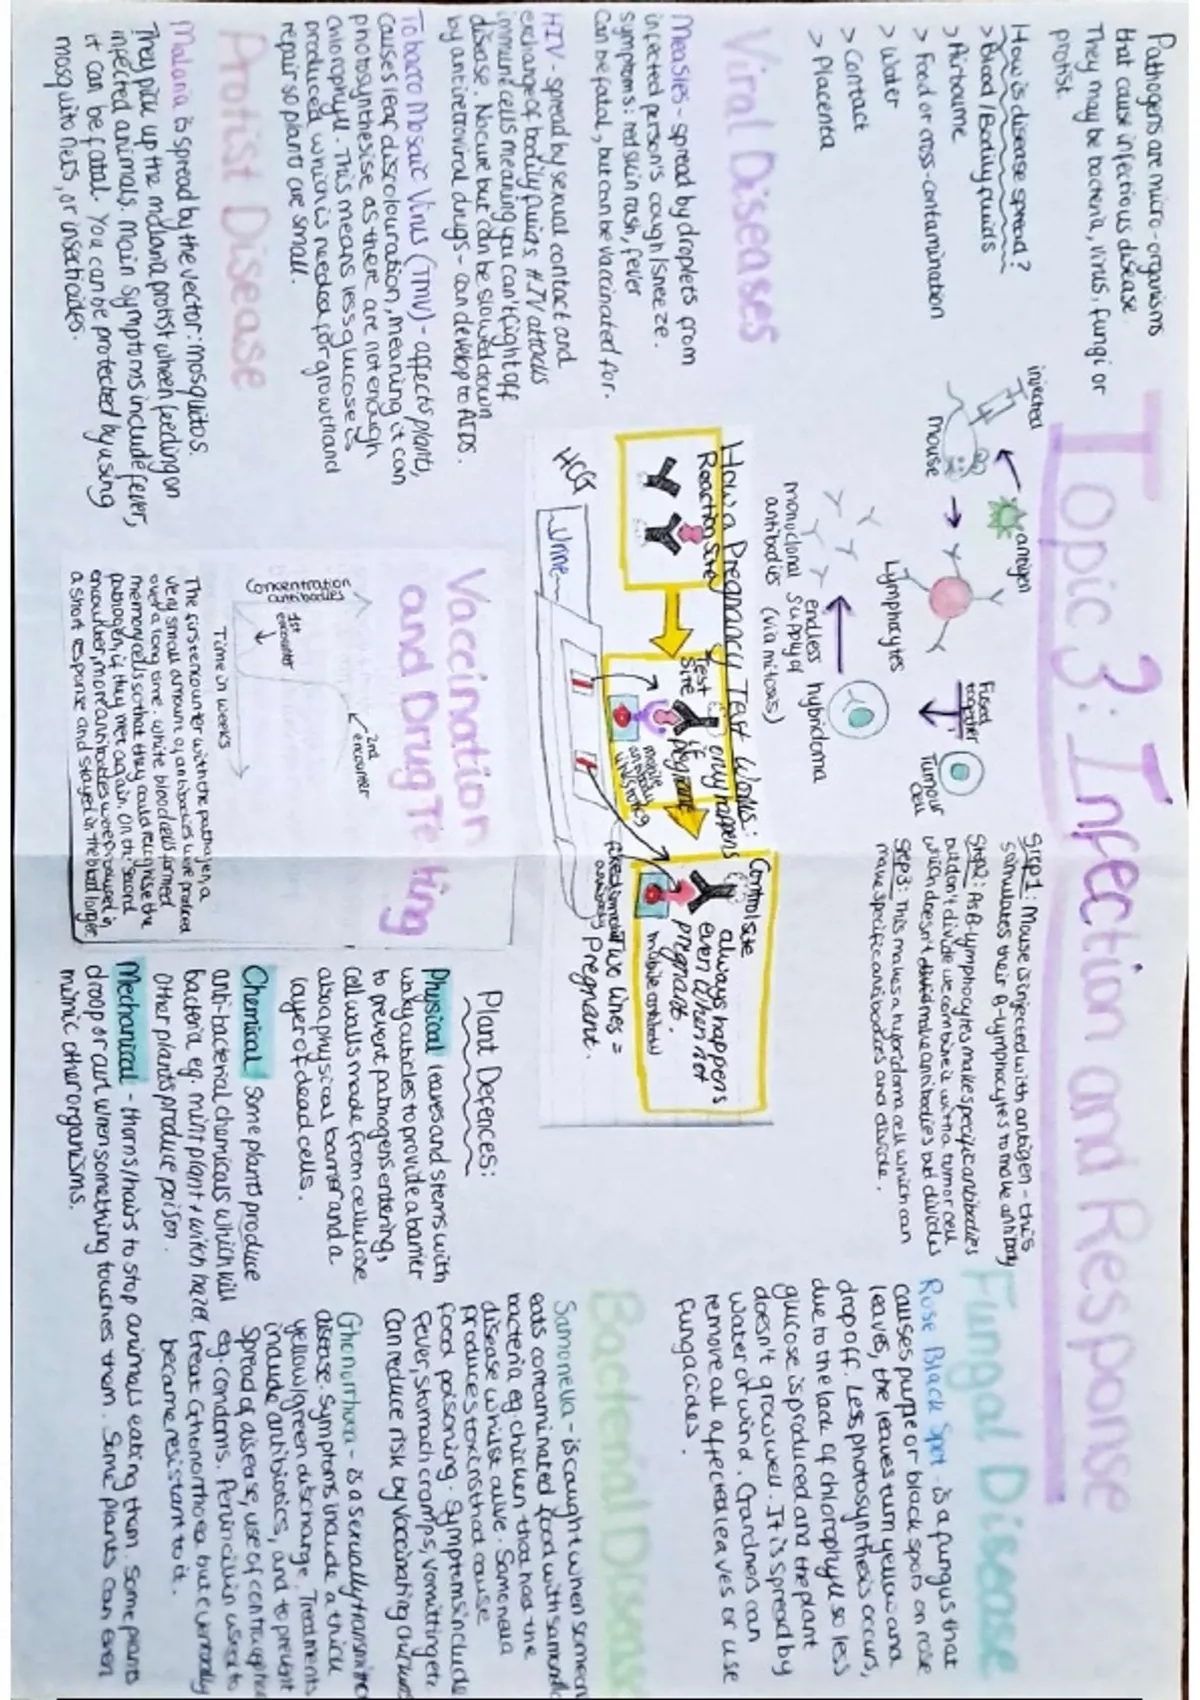 Topic 3: Infection and Response
Pathogens are micro-organisms
that cause infectious disease.
They may be bacteria, virus, fungi or
protist.
How is disease spread?
> Blood / Bodily fluids
> Airbourne
> Food or cross-contamination
> Water
> Contact
> Placenta
injected
mouse
antigen
Lymphocytes
Fused
together
Tumour
cell
hybridoma
endless
supply of
monoclonal
antibodies (via mitosis)
Step1: Mouse is injected with antigen - this
stimulates their B-lymphocytes to make antibody
Step2: As B-lymphocytes make specific antibodies
but don't divide we combine it with a tumor cell
which doesn't make antibodies but divides
Step3: This makes a hybridoma cell which can
make specific antibodies and divide.
Fungal Disease
Rose Black Spot - is a fungus that
causes purple or black spots on rose
leaves, the leaves turn yellow and
drop off. Less photosynthesis occurs,
due to the lack of chlorophyll so less
glucose is produced and the plant
doesn't grow well. It is spread by
water or wind. Gardners can
remove all affected leaves or use
fungacides.
Viral Diseases
Measles - spread by droplets from
infected person's cough/sneeze.
symptoms: red skin rash, fever
Can be fatal, but can be vaccinated for.
HIV - spread by sexual contact and
exchange of bodily fluids. HIV attacks
immune cells meaning you can't fight off
disease. No cure but can be slowed down
by antiretroviral drugs - can develop to AIDS.
Tobacco Mosaic Virus (TMV) - affects plants,
causes leaf discolouration, meaning it can
photosynthesise as there are not enough
chlorophyll. This means less glucose is
produced which is needed for growth and
repair so plants are small.
Protist Disease
Malaria is spread by the vector: mosquitos.
They pick up the malaria protist when feeding on
infected animals. Main symptoms include fever,
it can be fatal. You can be protected by using
mosquito nets, or insecticides.
How a Pregnancy Test Works:
Reaction Site
Test
Site
only happens
if
pregnant
Control site
always happens
even when not
pregnant.
HCG
Urine
Two lines =
Pregnant.
Vaccination
and Drug Testing
Concentration
antibodies
1st
encounter
2nd
encounter
Time in weeks
The first encounter with the pathogen, a
very small amount of antibodies were produced
over a long time. White blood cells formed
memory cells so that they could recognise the
pathogen if they met again. On the second
encounter, more antibodies were produced in
a short response and stayed in the blood longer.
Plant Defences:
Physical leaves and stems with
waxy cuticles to provide a barrier
to prevent pathogens entering,
cell walls made from cellulose
also a physical barrier and a
layer of dead cells.
Chemical Some plants produce
anti-bacterial chamicals which kill
bacteria eg. mint plant + witch hazel
Other plants produce poison.
Mechanical - thorns/hairs to stop animals eating tham. Some plants
droop or curl when something touches them. Some plants can even
mimic other organisms.
Bacterial Disease
Samonella - is caught when someone
eats contaminated food with
bacteria eg. chicken that has the
disease whilst alive. Samonella
produces toxins that cause
food poisoning. Symptoms include
fever, stomach cramps, vomitting etc
Can reduce risk by vaccinating
Ghonorrhoea - is a sexually
disease. Symptoms include a thick
yellow/green discharge. Treatments
include antibiotics, and to prevent
spread of disease, use of
eg. condoms. Penincilin used to
treat Ghonorrhoea but eventually
became resistant to it.